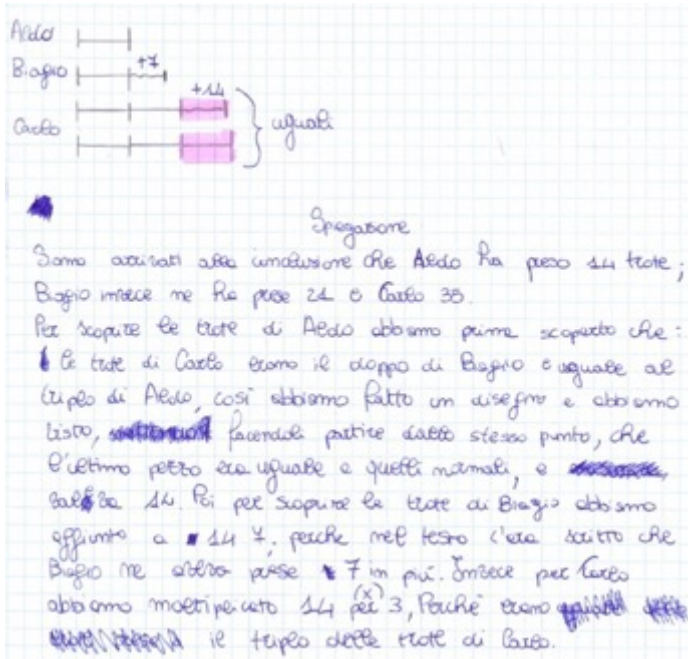 Aldo
Biagio +7
+14
Carlo uguali
Spiegazione
Siamo arrivati alla conclusione che Aldo ha preso 14 trote;
Biagio invece ne ha prese 21 e Carlo 35.
Per scoprire le trote di Aldo abbiamo prima scoperto che:
le trote di Carlo erano il doppio di Biagio e uguale al
triplo di Aldo, così abbiamo fatto un disegno e abbiamo
visto, facendoli partire dallo stesso punto, che
l'ultimo pezzo era uguale a quelli normali, e
valeva 14. Poi per scoprire le trote di Biagio abbiamo
aggiunto a 14 7, perche nel testo c'era scritto che
Biagio ne aveva prese 7 in più. Invece per Carlo
abbiamo moltipicato 14 per (x) 3, Perchè erano
il triplo delle trote di Carlo.